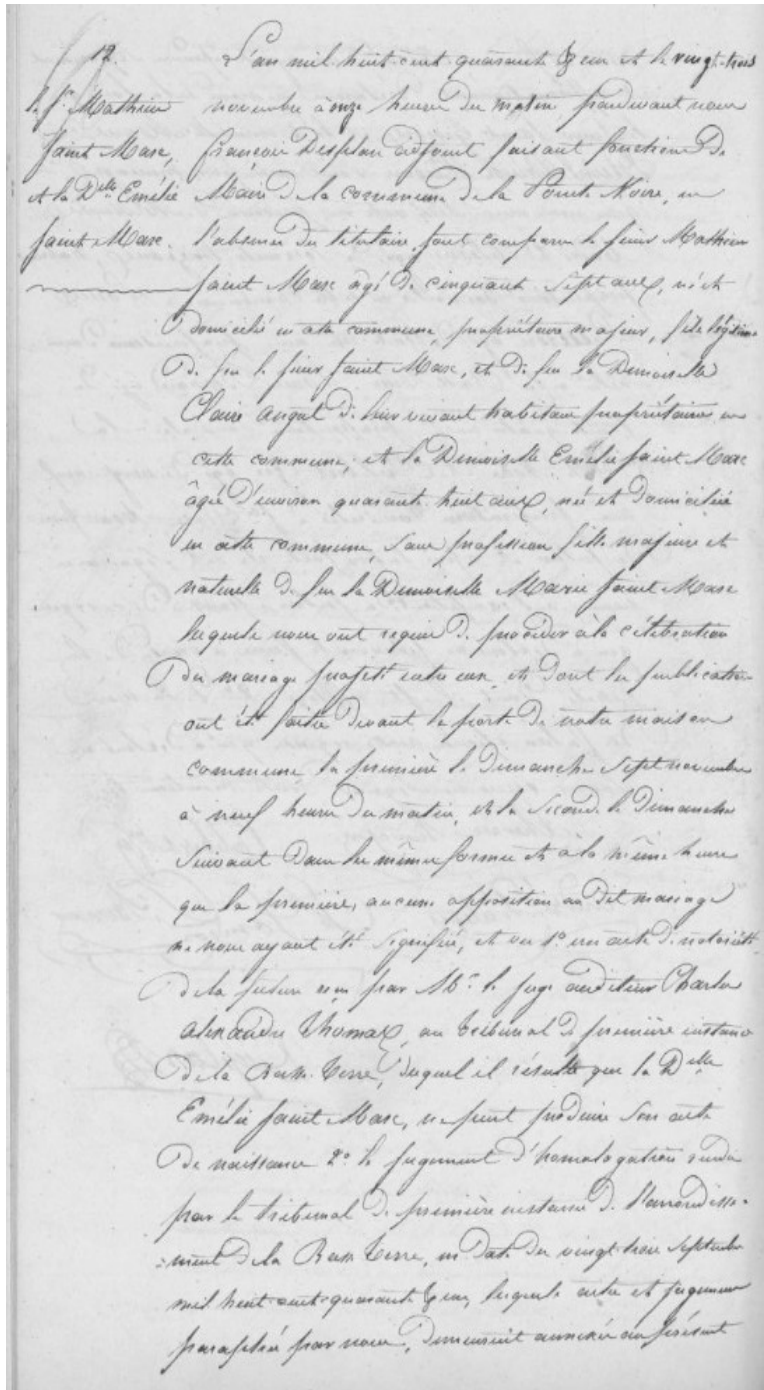 17.
le Sr. Mathieu
Saint Marc,
et la Dlle Emélie
Saint Marc.
L'an mil huit cent quarante deux et le vingt-trois
novembre à onze heures du matin pardevant nous
françois Desplan adjoint faisant fonctions de
Maire de la commune de la Pointe Noire, en
l'absence du titulaire, sont comparus le sieur Mathieu
Saint Marc agé de cinquante sept ans, né et
domicilié en cette commune, propriétaire majeur, fils légitime
de feu le sieur Saint Marc, et de feu la Demoiselle
Claire de leur vivant habitans propriétaires en
cette commune, et la Demoiselle Emélie Saint Marc
âgée d'environ quarante huit ans, née et domiciliée
en cette commune, sans profession fille majeure et
naturelle de feu la Demoiselle Marie Saint Marc
lesquels nous ont requis de procéder à la célébration
du mariage projeté entre eux, et dont les publications
ont été faites devant la porte de notre maison
commune, la première le dimanche sept novembre
à neuf heures du matin, et la seconde le dimanche
suivant dans les mêmes formes et à la même heure
que la première, aucune opposition au dit mariage
ne nous ayant été signifiée, et vu 1o. un acte de notoriété
de la future reçu par Mr. le juge auditeur Charles
alexandre Thomas, au tribunal de première instance
de la Basse-Terre, duquel il résulte que la Dlle
Emélie Saint Marc, ne peut produire son acte
de naissance 2o. le jugement d'homologation rendu
par le tribunal de première instance de l'arrondisse-
=ment de la Basse Terre, en date du vingt-trois Septembre
mil huit cent quarante deux, lesquels acte et jugement
paraphés par nous, demeureront annexés au présent